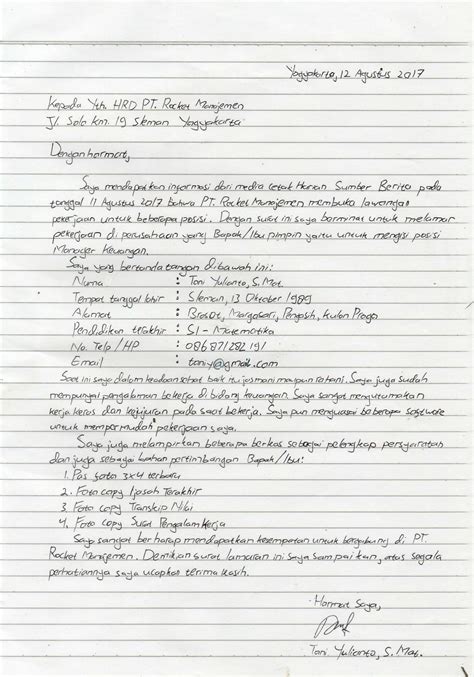 Yogyakarta, 12 Agustus 2017
Kepada Yth. HRD PT. Rocket Manajemen
Jl. Solo km. 19 Sleman Yogyakarta
Dengan hormat,
Saya mendapatkan informasi dari media cetak Harian Sumber Berita pada
tanggal 11 Agustus 2017 bahwa PT. Rocket Manajemen membuka lawangan
pekerjaan untuk beberapa posisi. Dengan surat ini saya berminat untuk melamar
pekerjaan di perusahaan yang Bapak/Ibu pimpin yaitu untuk mengisi posisi
Manager Keuangan.
Saya yang bertanda tangan dibawah ini:
Nama : Toni Yulianto, S.Mat.
Tempat tanggal lahir : Sleman, 13 Oktober 1989
Alamat : Brosot, Margosari, Pengasih, Kulon Progo
Pendidikan terakhir : S1 - Matematika
No. Telp / HP :
Email : toniy@gmail.com
Saat ini saya dalam keadaan sehat baik itu jasmani maupun rohani. Saya juga sudah
mempunyai pengalaman bekerja di bidang keuangan. Saya sangat mengutamakan
kerja keras dan kejujuran pada saat bekerja. Saya pun menguasai beberapa software
untuk mempermudah pekerjaan saya.
Saya juga melampirkan beberapa berkas sebagai pelengkap persyaratan
dan juga sebagai bahan pertimbangan Bapak/Ibu:
1. Pas foto 3x4 terbaru
2. Foto copy Ijasah Terakhir
3. Foto copy Transkip Nilai
4. Foto copy Surat Pengalam Kerja
Saya sangat berharap mendapatkan kesempatan untuk bergabung di PT.
Rocket Manajemen. Demikan surat lamaran ini saya sampaikan, atas segala
perhatiannya saya ucapkan terima kasih.
Hormat Saya,
Toni Yulianto, S.Mat.